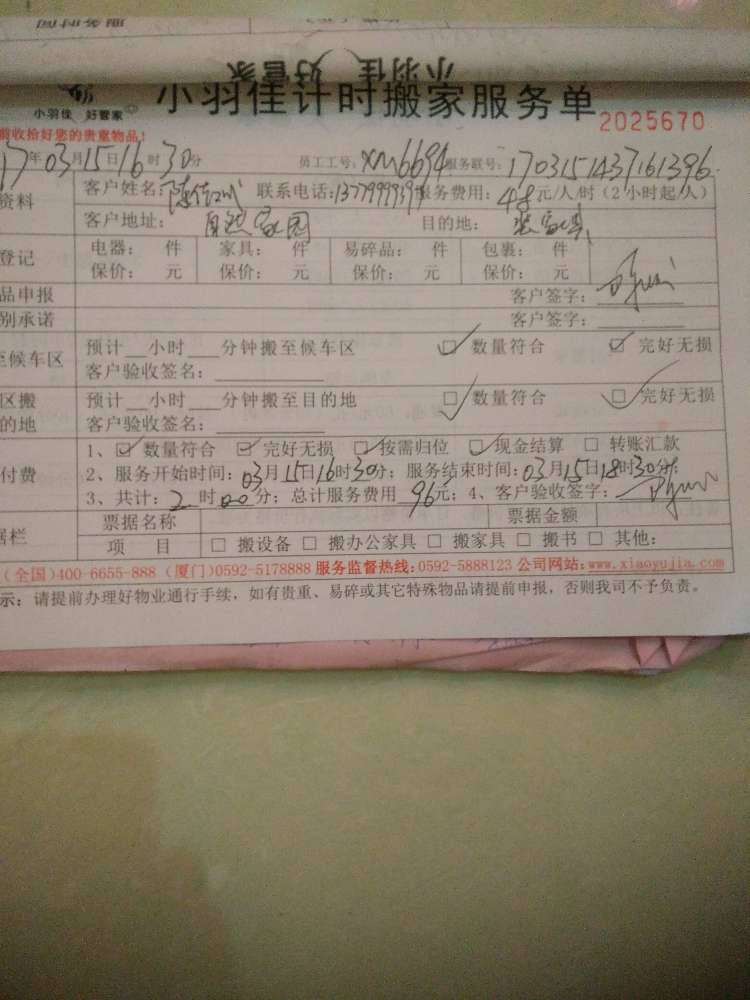 小羽佳 好管家
小羽佳 好管家 小羽佳计时搬家服务单 2025670
前收拾好您的贵重物品!
17年03月15日16时30分 员工工号: XM6694 服务联号: 1703151437161396
资料 客户姓名: 联系电话: 服务费用: 48元/人/时(2小时起/人)
客户地址: 家园 目的地:
登记 电器: 件 家具: 件 易碎品: 件 包裹: 件
保价: 元 保价: 元 保价: 元 保价: 元
品申报 客户签字:
别承诺 客户签字:
至候车区 预计 小时 分钟搬至候车区 ☑ 数量符合 ☑ 完好无损
客户验收签名:
区搬 预计 小时 分钟搬至目的地 ☑ 数量符合 ☑ 完好无损
的地 客户验收签名:
付费 1、☑ 数量符合 ☑ 完好无损 ☑ 按需归位 ☑ 现金结算 □ 转账汇款
2、服务开始时间: 03月15日16时30分; 服务结束时间: 03月15日18时30分;
3、共计: 2时00分; 总计服务费用 96元; 4、客户验收签字:
据栏 票据名称 票据金额
项 目 □ 搬设备 □ 搬办公家具 □ 搬家具 □ 搬书 □ 其他:
(全国)400-6655-888 (厦门)0592-5178888 服务监督热线:0592-5888123 公司网站:www.xiaoyujia.com
示: 请提前办理好物业通行手续, 如有贵重、易碎或其它特殊物品请提前申报, 否则我司不予负责。